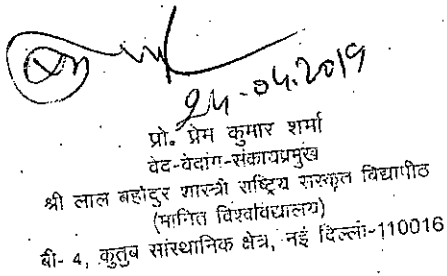 24-04.2019
प्रो. प्रेम कुमार शर्मा
वेद-वेदांग-संकायप्रमुख
श्री लाल बहादुर शास्त्री राष्ट्रिय संस्कृत विद्यापीठ
(मानित विश्वविद्यालय)
बी- 4, कुतुब सांस्थानिक क्षेत्र, नई दिल्ली-110016